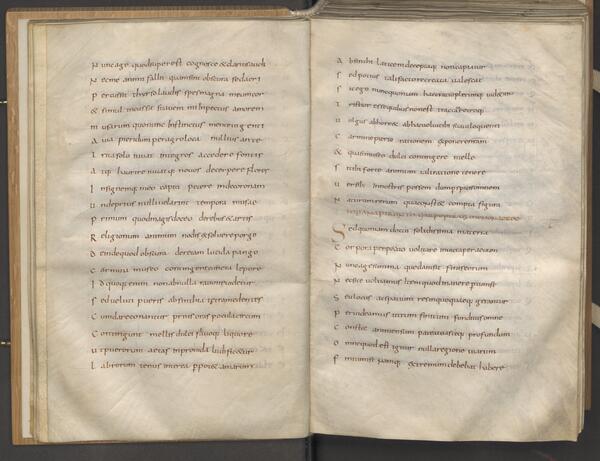 N uncage quod super est cognosce & clarius audi
N ec me animi fallit quam sint obscura sed acri
P ercussit thyrso laudis spes magna meum cor
& simul incussit suavem mi in pectus amorem
m usarum quo nunc instinctus mente vigenti
A via pieridum peragro loca nullius ante
T rita solo iuvat integros accedere fontis
A tq haurire iuvatq novos decerpere flores
I nsignemq meo capiti petere inde coronam
u nde prius nulli velarint tempora musae
P rimum quod magis doceo de rebus & artis
R eligionum animum nodis exsolvere pergo
D einde quod obscura de re tam lucida pango
C armina museo contingens cuncta lepore
I d quoq enim non ab nulla ratione videtur
S ed veluti pueris absinthia tetra medentes
C um dare conantur prius oras pocula circum
C ontingunt mellis dulci flavoq liquore
u t puerorum aetas inprovida ludificetur
L abrorum tenus interea p potet amarum
A bsinthi laticem deceptaq non capiatur
S ed potius tali facto recreata valescat
S ic ego nunc quoniam haec ratio plerumq videtur
T ristior esse quibus non est tractata retroq
u olgus abhorret ab hac volui tibi suaviloquenti
C armine pierio rationem exponere nostram
& quasi museo dulci contingere melle
S i tibi forte animum tali ratione tenere
u ersibus in nostris possem dum perspicis omnem
N aturam rerum qua constet compta figura
S ed quoniam docui solidissima materiai
C orpora perpetuo volitare invicta per aevom
N unc age summa quaedam sit finis eorum
N ec sit evolvamus item quod inane repertumst
S eu locus ac spatium res in quo quaeq gerantur
P ervideamus utrum finitum funditus omne
C onstet an immensum pateat vasteq profundum
O mne quod est igitur nulla regione viarum
F initumst namq extremum debebat habere